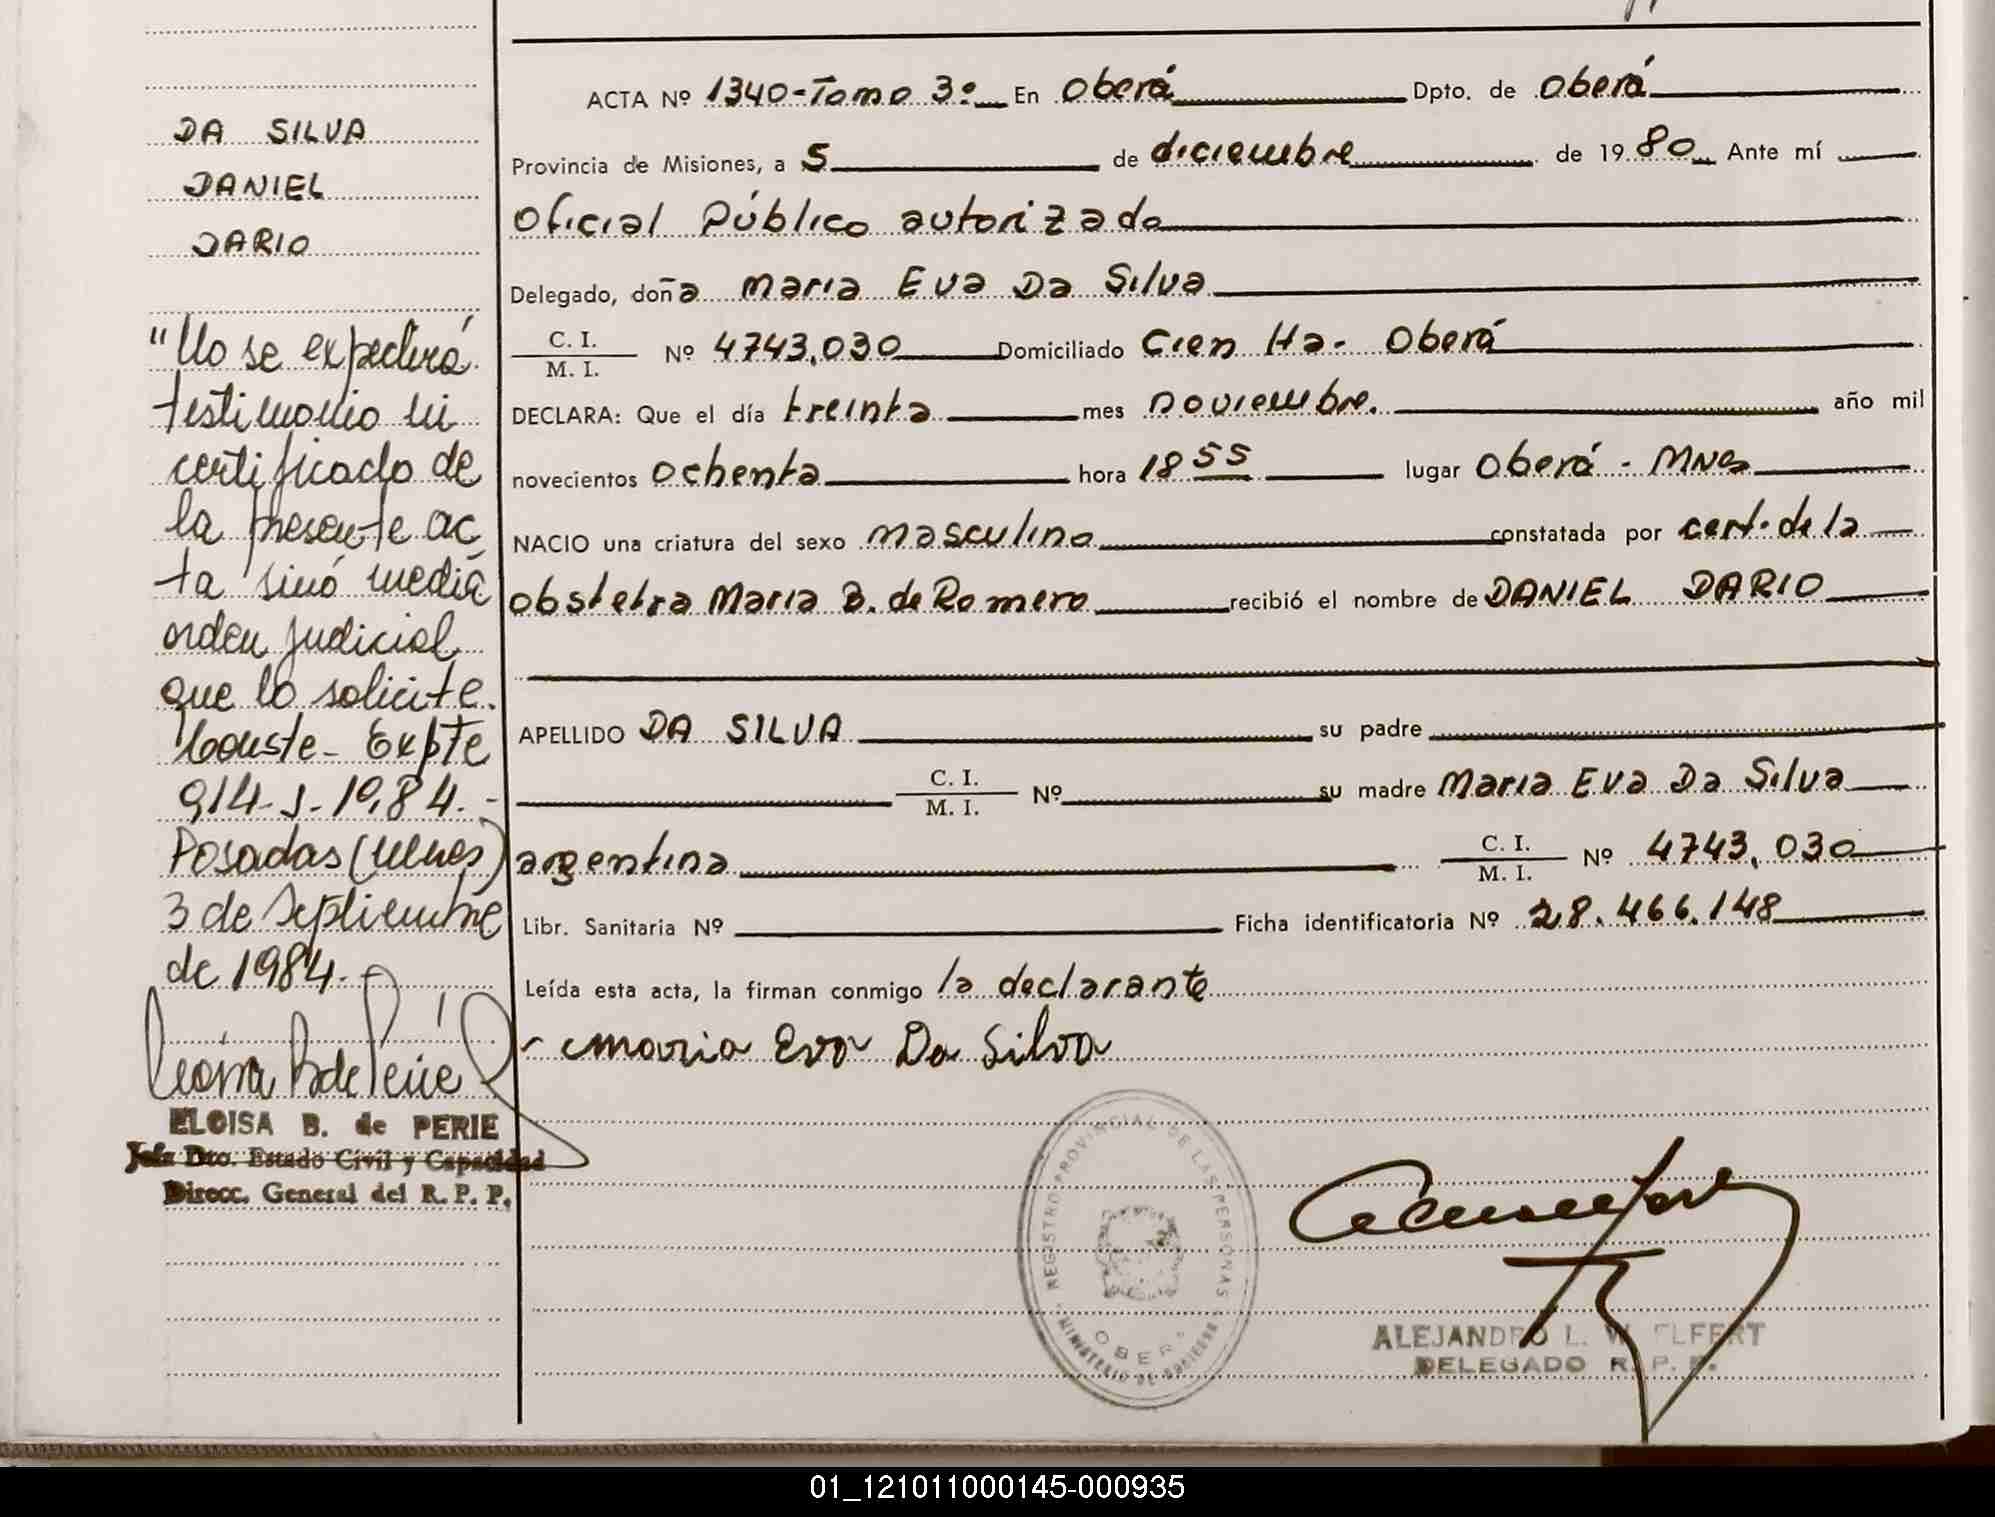 DA SILVA
DANIEL
DARIO
"No se expedirá
testimonio ni
certificado de
la presente ac
ta sinó media
orden judicial
que lo solicite.
Conste- Expte
914-J-1984.-
Posadas (Mnes)
3 de Septiembre
de 1984.-
ELOISA B. de PERIE
Jefa Dto. Estado Civil y Capacidad
Direcc. General del R. P. P.
ACTA Nº 1340-Tomo 3º En Oberá Dpto. de Oberá
Provincia de Misiones, a 5 de diciembre de 1980 Ante mí
Oficial Público autorizado
Delegado, doña Maria Eva Da Silva
C. I.
M. I. Nº 4743.030 Domiciliado Cien Ha- Oberá
DECLARA: Que el día treinta mes noviembre. año mil
novecientos ochenta hora 18 55 lugar Oberá - Mnes
NACIO una criatura del sexo masculino constatada por cert. de la
obstetra Maria B. de Romero recibió el nombre de DANIEL DARIO
APELLIDO DA SILVA su padre
C. I.
M. I. Nº su madre Maria Eva Da Silva
argentina C. I.
M. I. Nº 4743.030
Libr. Sanitaria Nº Ficha identificatoria Nº 28.466.148
Leída esta acta, la firman conmigo la declarante
Maria Eva Da Silva
REGISTRO PROVINCIAL DE LAS PERSONAS
MINISTERIO DE GOBIERNO
ALEJANDRO L. W. ELFERT
DELEGADO R. P. P.
01_121011000145-000935